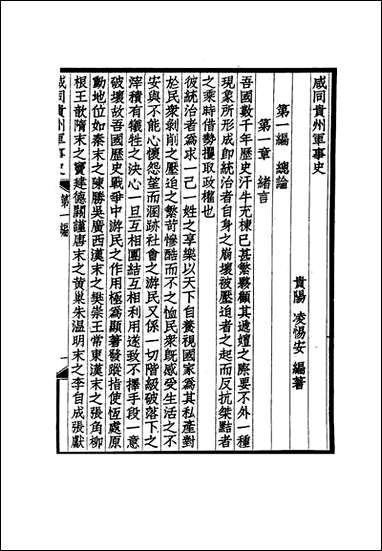 咸同貴州軍事史
貴陽 凌惕安 編著
第一編 總論
第一章 緒言
吾國數千年歷史汗牛充棟已甚繁夥顧其遞嬗之際要不外一種
現象所形成即統治者自身之崩壞被壓迫者之起而反抗桀黠者
之乘時借勢攫取政權也
彼統治者為求一己一姓之享樂以天下自養視國家為其私產對
於民衆剝削之壓迫之繁苛慘酷而不之恤民衆既感受生活之不
安與不能心懷怨望而涸跡社會之游民又係一切階級破落下之
滓積有犧牲之決心一旦互相團結互相利用遂致不擇手段一意
破壞故吾國歷史戰爭中游民之作用極為顯著發蹤指使恆處原
動地位如秦末之陳勝吳廣西漢末之樊崇王常東漢末之張角柳
根王歆隋末之竇建德關謹唐末之黃巢朱溫明末之李自成張獻
咸同貴州軍事史
第一編
一